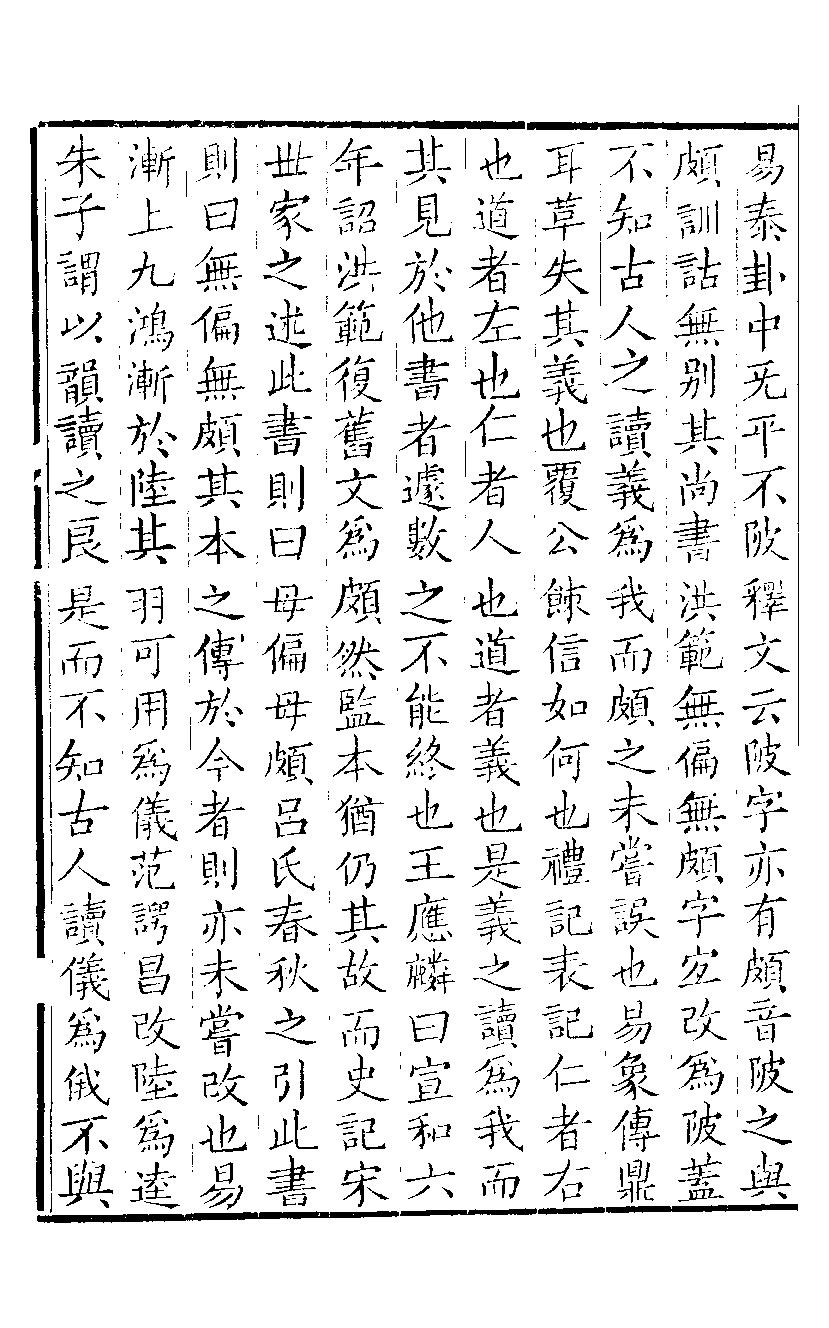 易泰卦中无平不陂釋文云陂字亦有頗音陂之與
頗訓詁無别其尚書洪範無偏無頗字宜改爲陂蓋
不知古人之讀義爲我而頗之未嘗誤也易象傳鼎
耳革失其義也覆公餗信如何也禮記表記仁者右
也道者左也仁者人也道者義也是義之讀爲我而
其見於他書者遽數之不能終也王應麟曰宣和六
年詔洪範復舊文爲頗然監本猶仍其故而史記宋
世家之述此書則曰毋偏毋頗呂氏春秋之引此書
則曰無偏無頗其本之傳於今者則亦未嘗改也易
漸上九鴻漸於陸其羽可用爲儀范諤昌改陸爲逵
朱子謂以韻讀之良是而不知古人讀儀爲俄不與